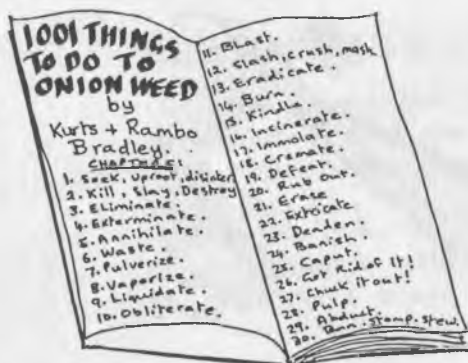 1001 THINGS
TO DO TO
ONION WEED
by
Kurts + Rambo
Bradley.
CHAPTERS:
1. Seek, uproot, disinter
2. Kill, Slay, Destroy
3. Eliminate.
4. Exterminate.
5. Annihilate.
6. Waste.
7. Pulverize.
8. Vaporize.
9. Liquidate.
10. Obliterate.
11. Blast.
12. Slash, crush, mash
13. Eradicate.
14. Burn.
15. Kindle.
16. Incinerate.
17. Immolate.
18. Cremate.
19. Defeat.
20. Rub out.
21. Erase
22. Extricate
23. Deaden.
24. Banish.
25. Caput.
26. Get Rid of It!
27. Chuck it out!
28. Pulp.
29. Abduct.
30. Stamp. Stew.